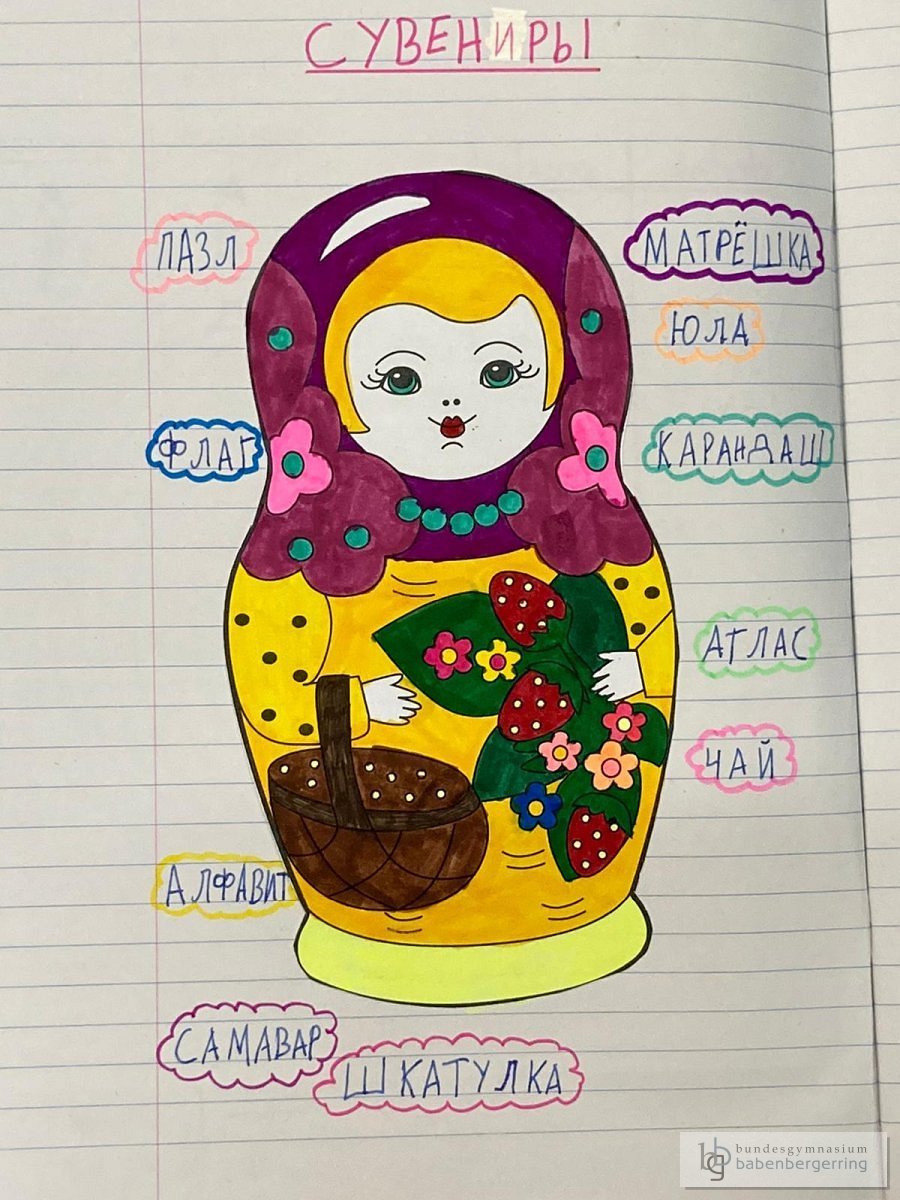 СУВЕНИРЫ
ПАЗЛ
МАТРЁШКА
ЮЛА
ФЛАГ
КАРАНДАШ
АТЛАС
ЧАЙ
АЛФАВИТ
САМАВАР
ШКАТУЛКА
bundesgymnasium
babenbergerring